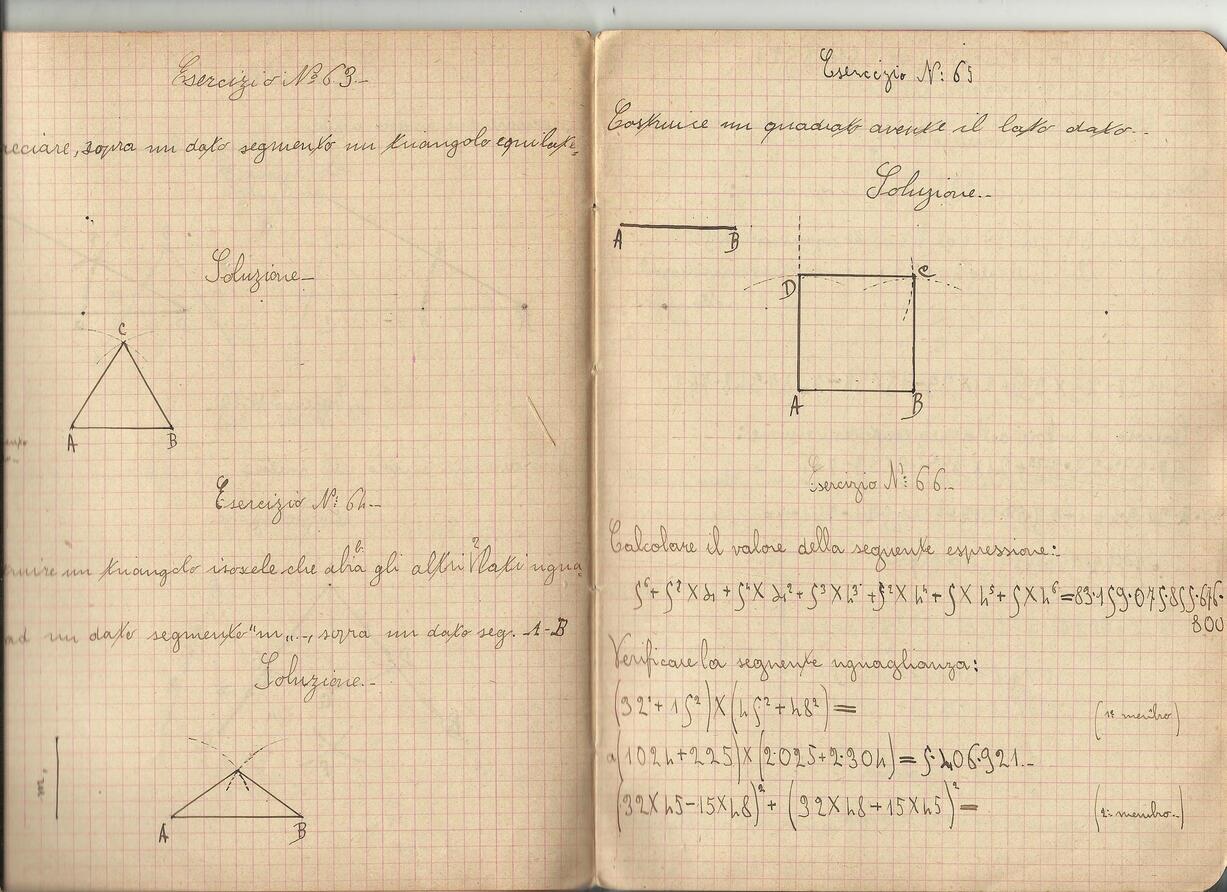 Esercizio N° 63.-
sopra un dato segmento un triangolo equilate=
Soluzione-
C
A B
Esercizio N°: 64.-
un triangolo isoscele che abbia gli altri 2 lati ugua
ad un dato segmento "m"..-, sopra un dato seg. A-B
Soluzione.-
m,
A B
Esercizio N: 65
Costruire un quadrato avente il lato dato.-
Soluzione.-
A B
D C
A B
Esercizio N°: 66.-
Calcolare il valore della seguente espressione:
=83.159.075.855.676.
800
Verificare la seguente uguaglianza:
(32²+15²)X(45²+48²)= (1° membro)
(1024+225)X(2.025+2.304)=5.406.921.-
(32X45-15X48)²+(32X48+15X45)²= (2° membro.-)